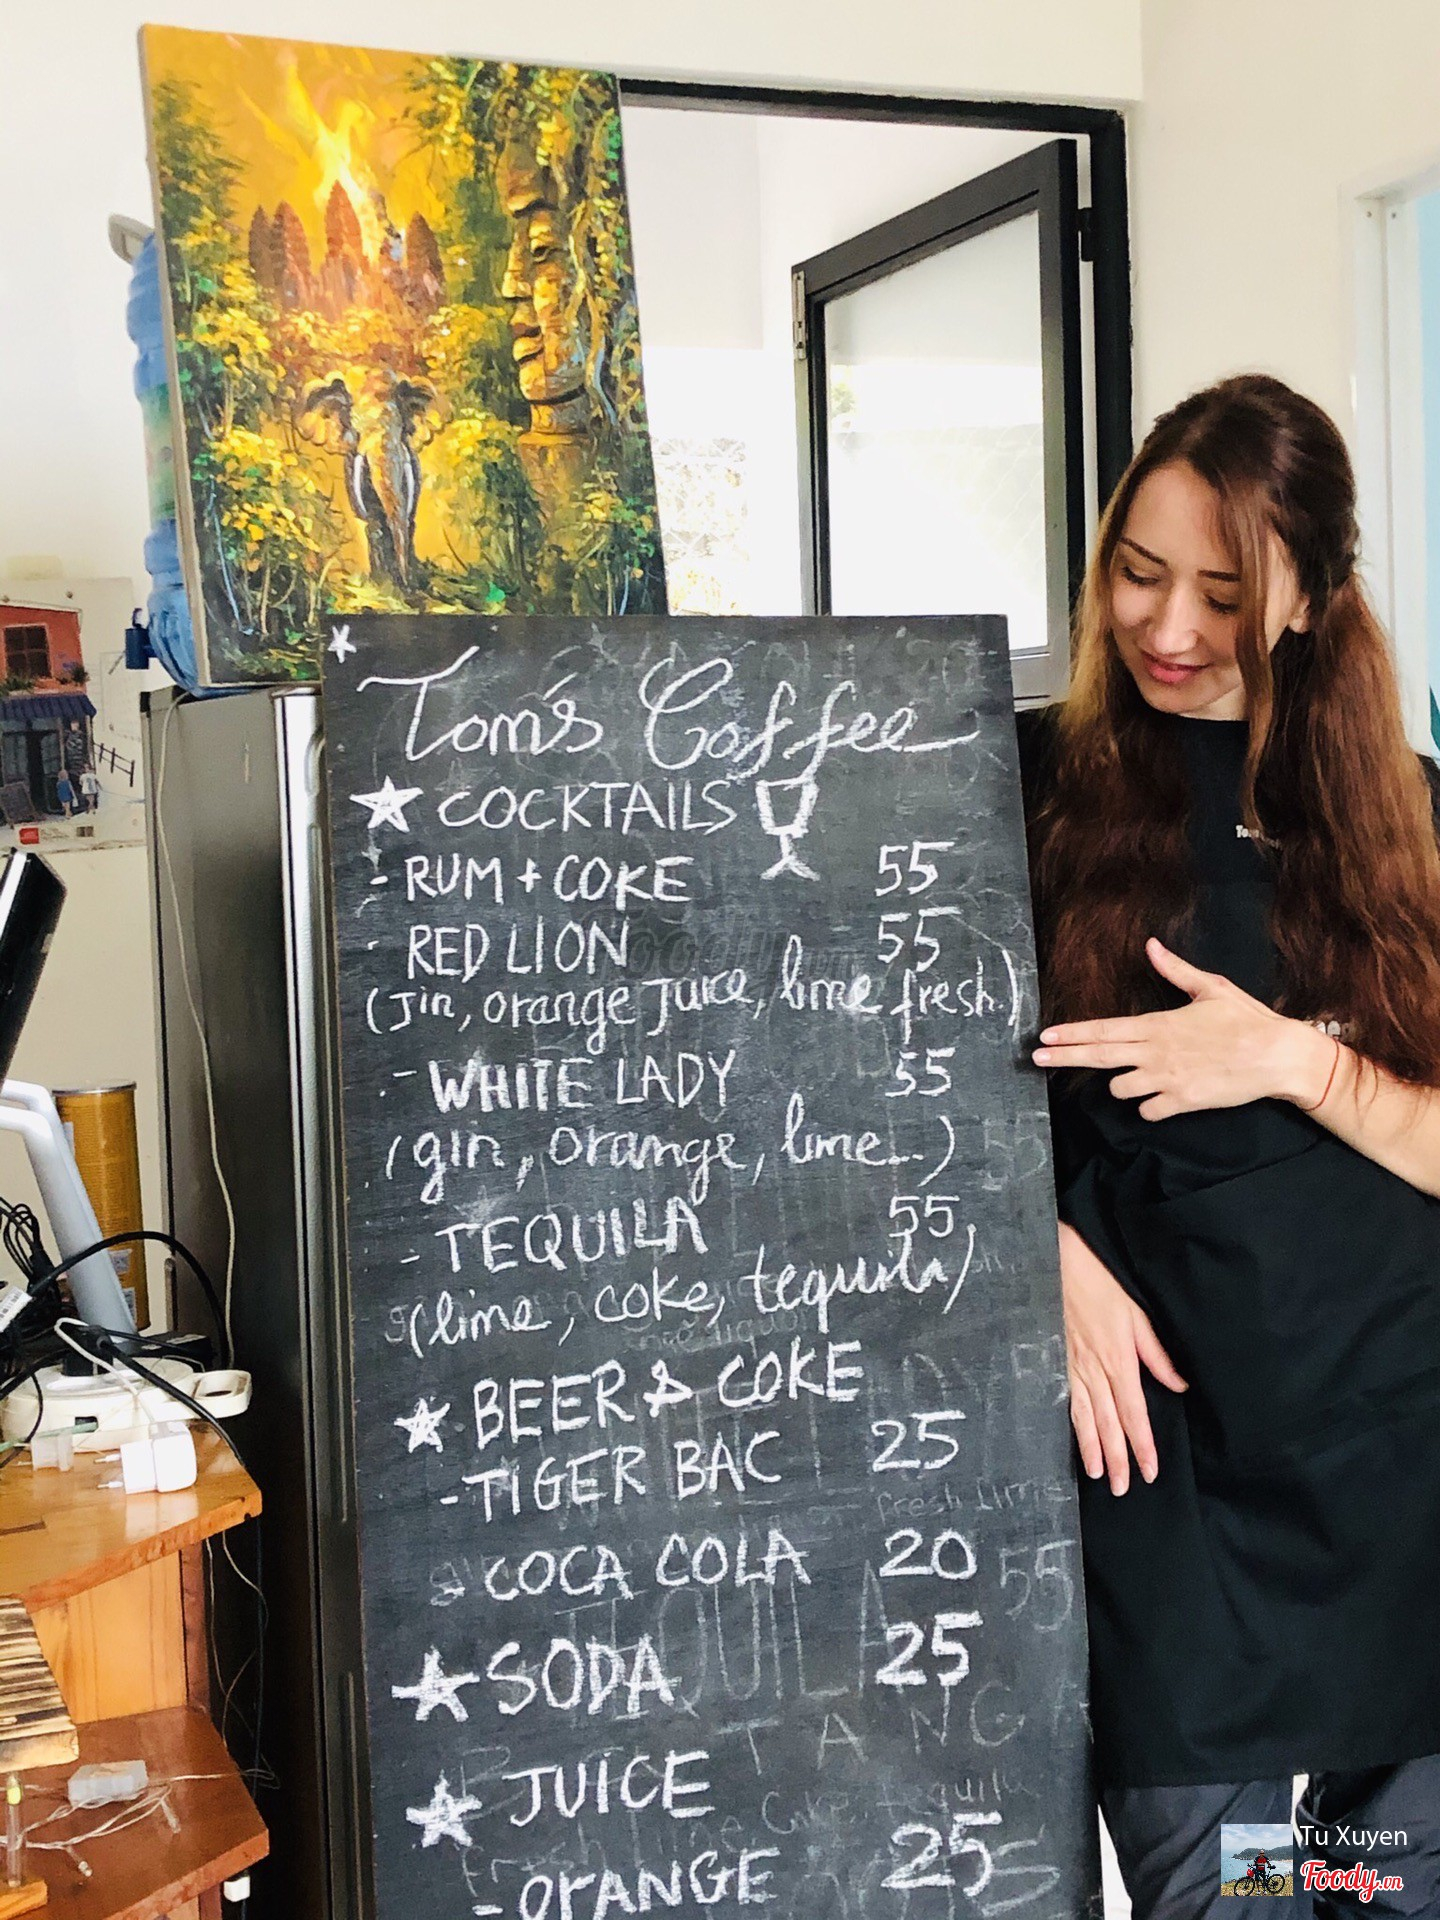 Tom's Coffee
COCKTAILS
- RUM + COKE 55
- RED LION 55
(Jin, orange Juice, lime fresh.)
- WHITE LADY 55
(gin, orange, lime...)
- TEQUILA 55
(lime, coke, tequila)
BEER & COKE
- TIGER BAC 25
- COCA COLA 20
SODA 25
JUICE
- ORANGE 25
Tu Xuyen
Foody.vn